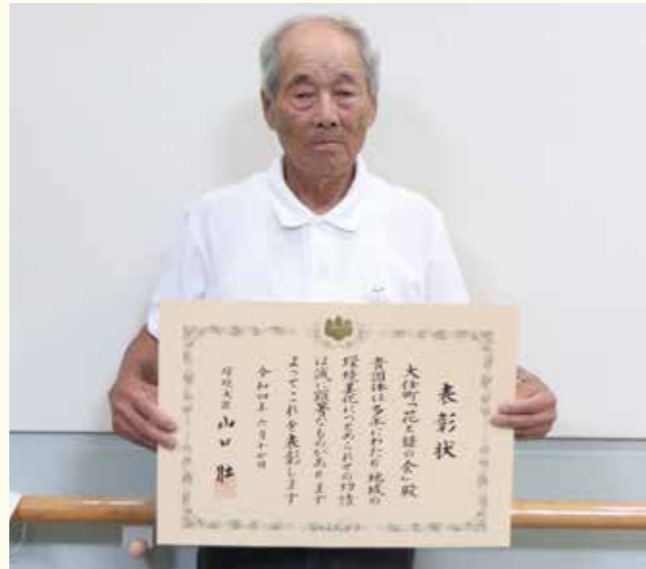 表彰状
大住町「花と緑の会」殿
貴団体は多年にわたり地域の
環境美化につとめられその功績
は誠に顕著なものがあります
よってこれを表彰します
令和四年六月十七日
環境大臣 山口 壯